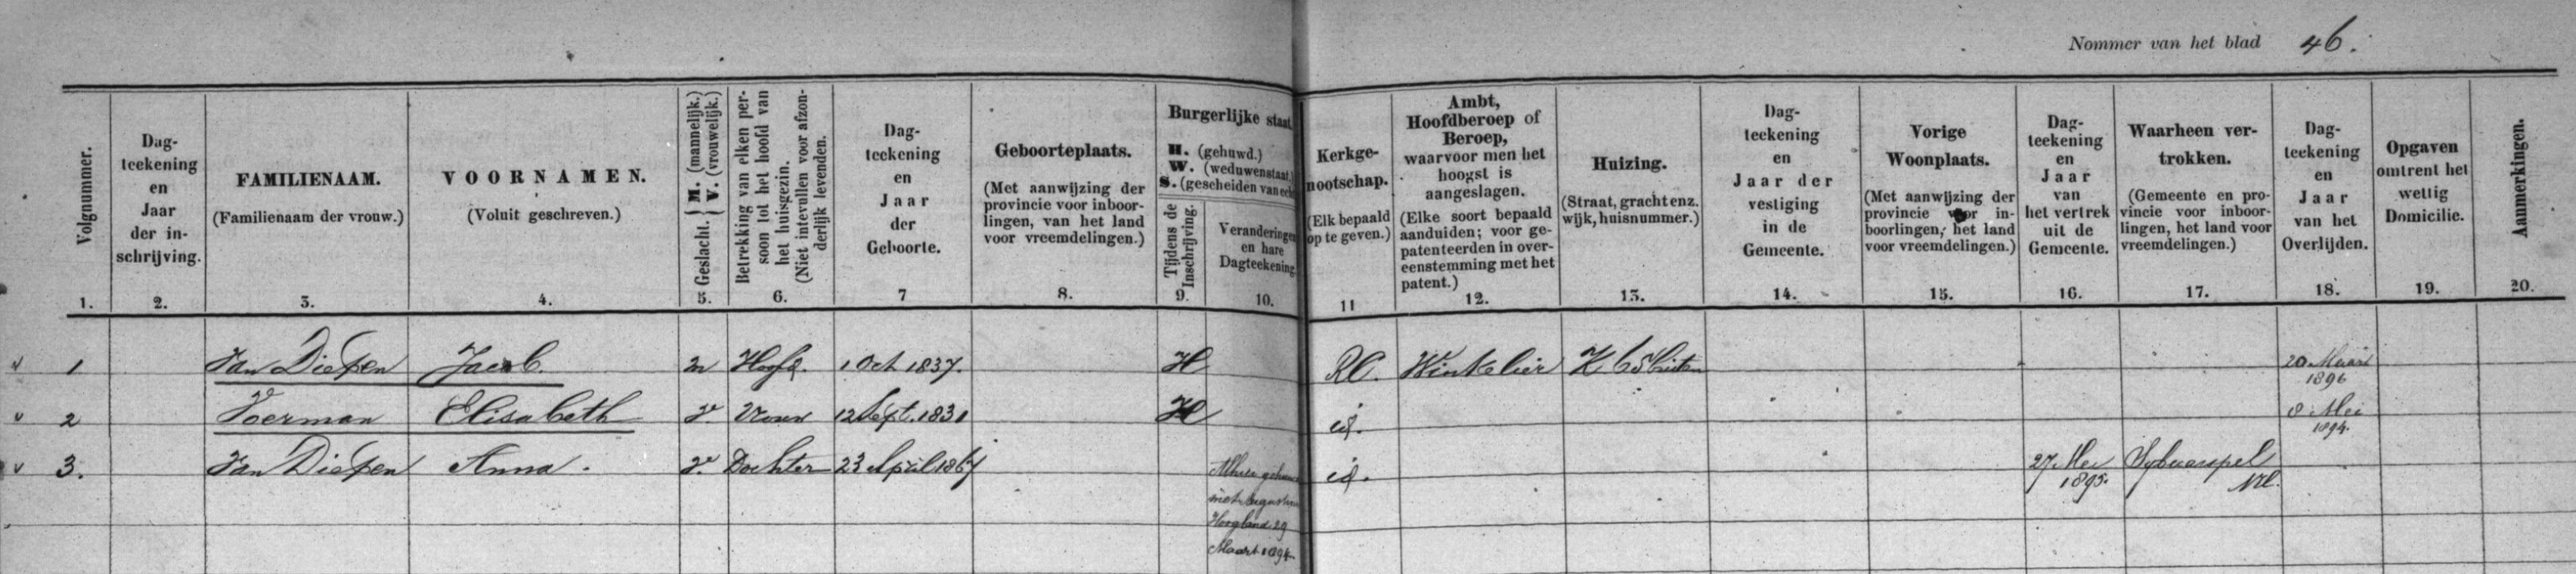 Nommer van het blad 46.
Volgnummer.
1.
Dag-
teekening
en
Jaar
der in-
schrijving.
2.
FAMILIENAAM.
(Familienaam der vrouw.)
3.
VOORNAMEN.
(Voluit geschreven.)
4.
Geslacht. { M. (mannelijk.)
V. (vrouwelijk.)
5.
Betrekking van elken per-
soon tot het hoofd van
het huisgezin.
(Niet intevullen voor afzon-
derlijk levenden.
6.
Dag-
teekening
en
Jaar
der
Geboorte.
7
Geboorteplaats.
(Met aanwijzing der
provincie voor inboor-
lingen, van het land
voor vreemdelingen.)
8.
Burgerlijke staat.
H. (gehuwd.)
W. (weduwenstaat.)
S. (gescheiden van echt
Tijdens de
Inschrijving.
9.
Veranderingen
en hare
Dagteekening.
10.
Kerkge-
nootschap.
(Elk bepaald
op te geven.)
11
Ambt,
Hoofdberoep of
Beroep,
waarvoor men het
hoogst is
aangeslagen.
(Elke soort bepaald
aanduiden; voor ge-
patenteerden in over-
eenstemming met het
patent.)
12.
Huizing.
(Straat, gracht enz.
wijk, huisnummer.)
13.
Dag-
teekening
en
Jaar der
vestiging
in de
Gemeente.
14.
Vorige
Woonplaats.
(Met aanwijzing der
provincie voor in-
boorlingen, het land
voor vreemdelingen.)
15.
Dag-
teekening
en
Jaar
van
het vertrek
uit de
Gemeente.
16.
Waarheen ver-
trokken.
(Gemeente en pro-
vincie voor inboor-
lingen, het land voor
vreemdelingen.)
17.
Dag-
teekening
en
Jaar
van het
Overlijden.
18.
Opgaven
omtrent het
wettig
Domicilie.
19.
Aanmerkingen.
20.
v 1 Van Diepen Jacob. m Hoofd. 1 Oct 1837. H RC. Winkelier K 65 20 Maart
1896
v 2 Voerman Elisabeth v. Vrouw 12 Sept. 1831 H id. 8 Mei
1894.
v 3. Van Diepen Anna. v. Dochter 23 April 1867 id. 27 Mei Sybecarspel
1895. NH.
Alhier gehuwd
met Augustinus
Hoogland 29
Maart 1894.